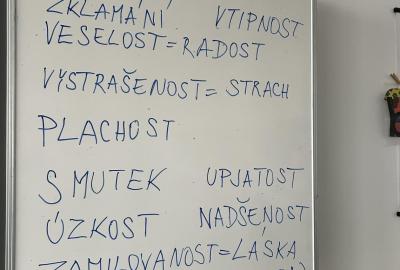 ZKLAMÁNÍ VTIPNOST
VESELOST = RADOST
VYSTRAŠENOST = STRACH
PLACHOST
SMUTEK UPJATOST
ÚZKOST NADŠENOST
ZAMILOVANOST = LÁSKA